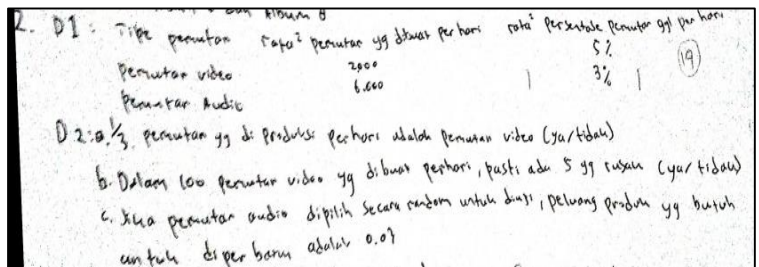 dan Album B
2. D1: Tipe pemutar rata² pemutar yg dibuat per hari rata² Persentase Pemutar ggl per hari
Pemutar video 2,000 5%
Pemutar Audio 6.000 3% 19
D2: a. 1/3 pemutar yg di Produksi Perhari adalah Pemutar video (ya/tidak)
b. Dalam 100 Pemutar video yg dibuat perhari, pasti ada 5 yg rusak (ya/tidak)
c. Jika pemutar audio dipilih secara random untuk diuji, peluang produk yg butuh
untuk diperbarui adalah 0.03